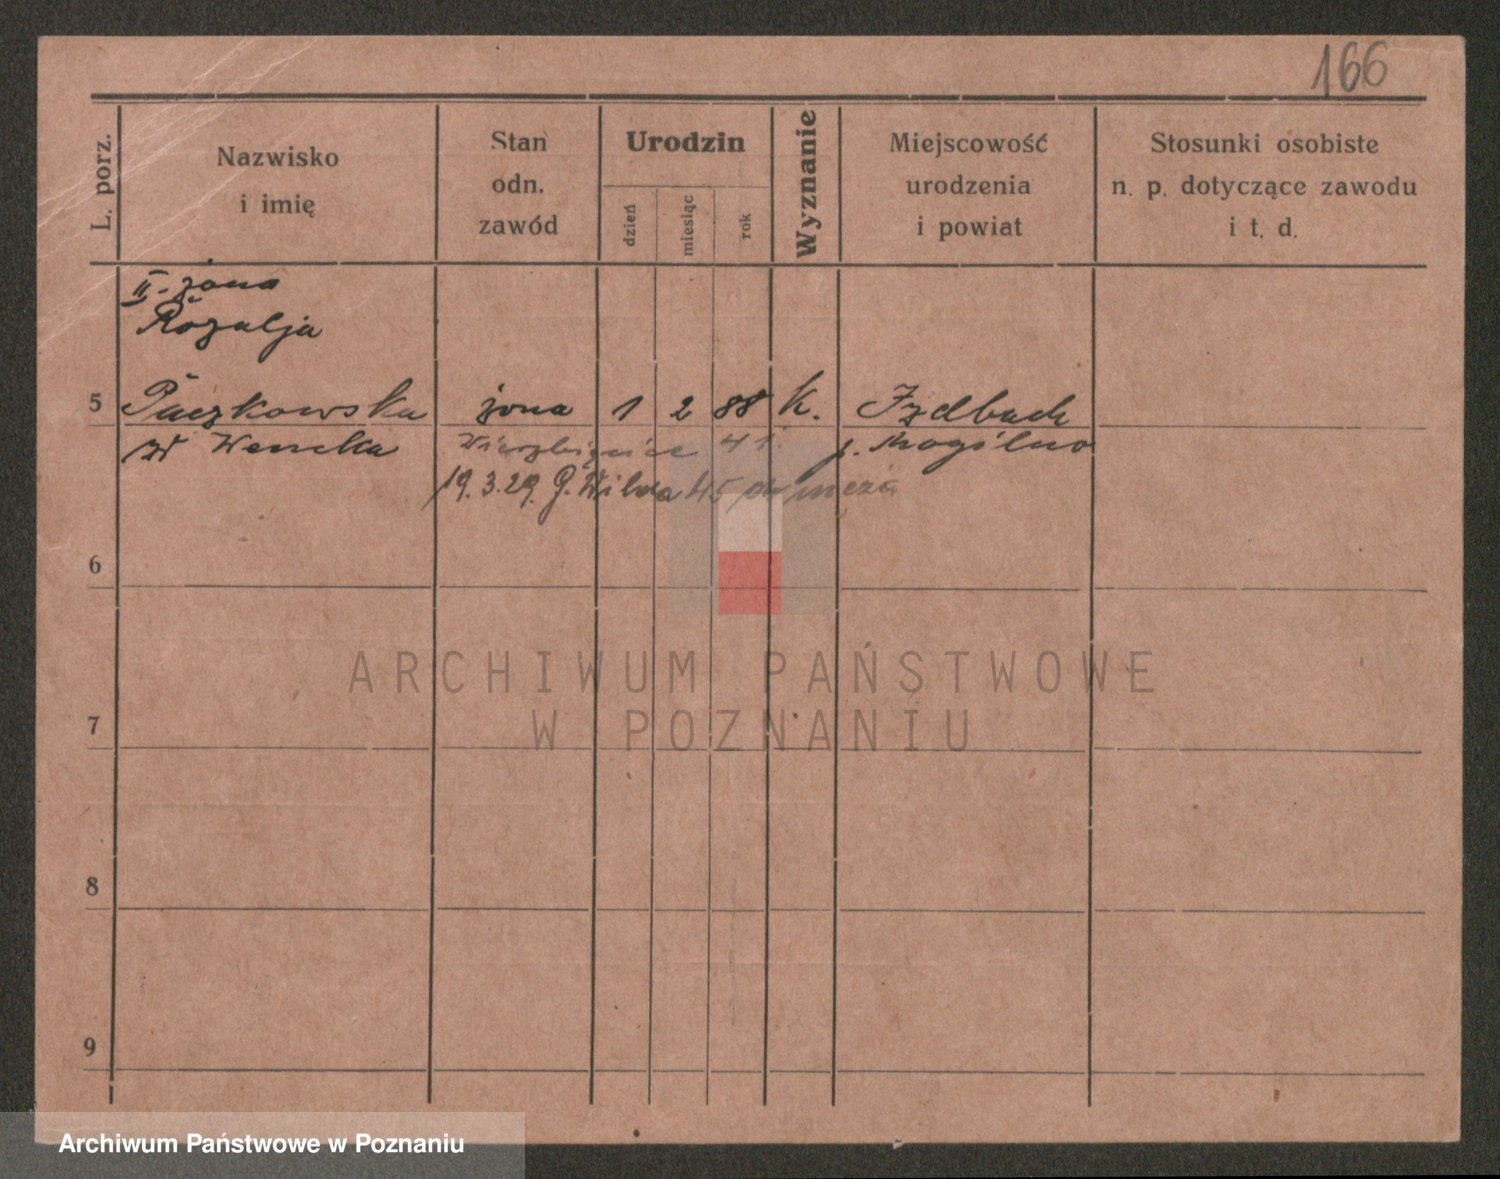 166
L. porz.
Nazwisko
i imię
Stan
odn.
zawód
Urodzin
dzień
miesiąc
rok
Wyznanie
Miejscowość
urodzenia
i powiat
Stosunki osobiste
n. p. dotyczące zawodu
i t. d.
II. żona
Rozalja
5 Paczkowska żona 1 2 88 k. Izdbach
Wencka 41. p. Mogilno
19.3.29. G. Wilda 45 męża
6
7
8
9
ARCHIWUM PAŃSTWOWE
W POZNANIU
Archiwum Państwowe w Poznaniu